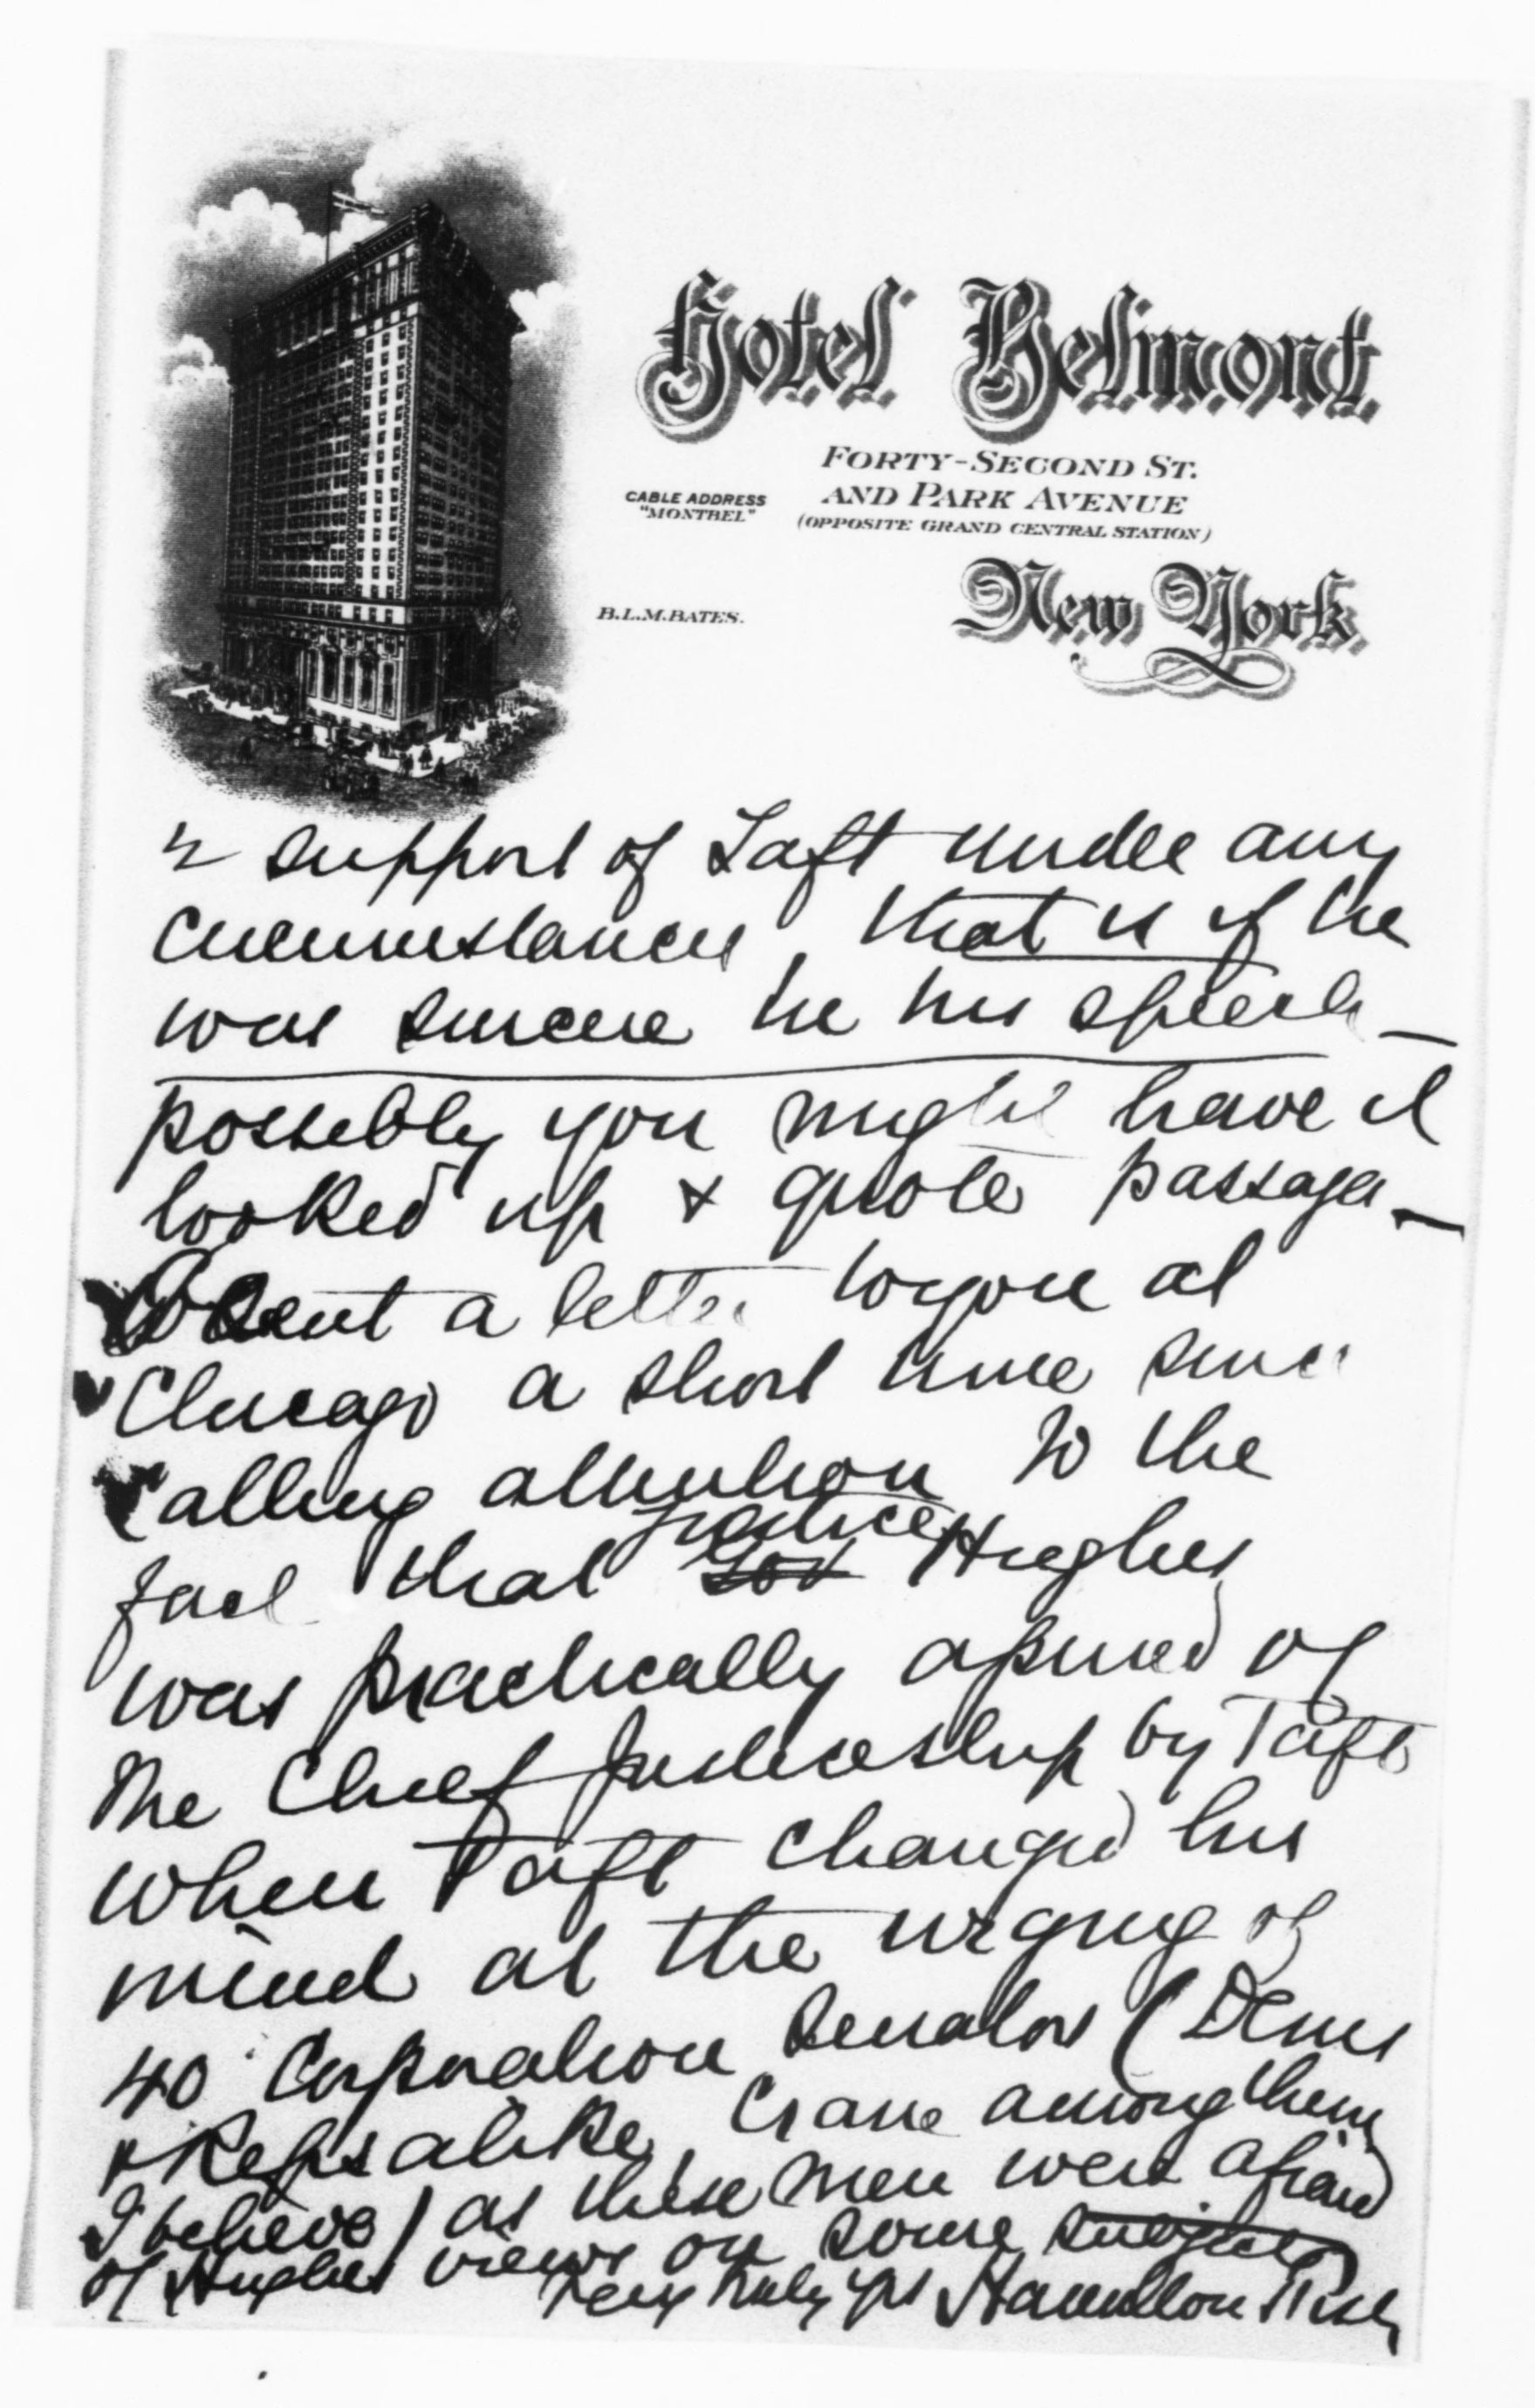 Hotel Belmont
FORTY-SECOND ST.
AND PARK AVENUE
(OPPOSITE GRAND CENTRAL STATION)
CABLE ADDRESS
"MONTBEL"
New York
B.L.M. BATES.
support of Taft under any
circumstances, that is if he
was sincere in his speech —
possibly you might have it
looked up & quote passage —
sent a letter to you at
Chicago a short time since
calling attention to the
fact that Justice Hughes
was practically assured of
the Chief Justiceship by Taft
when Taft changed his
mind at the urging of
40 Corporation Senators (Dems
& Reps alike, Crane among them
I believe) as these men were afraid
of Hughes views on some subjects
Very truly yrs Hamilton Fish